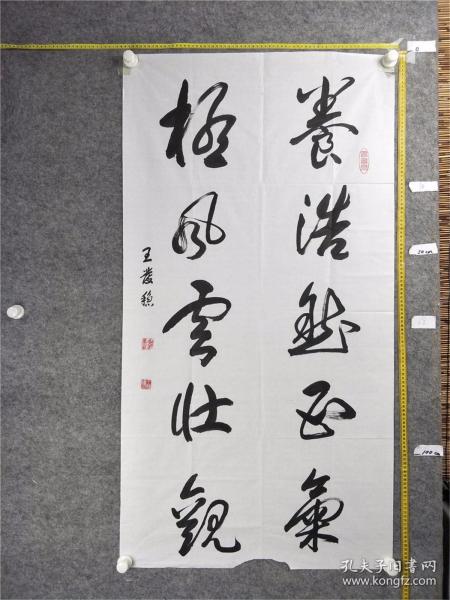 養浩然正氣
極風雲壯觀
王發
50cm
100cm
孔夫子旧书网
www.kongfz.com